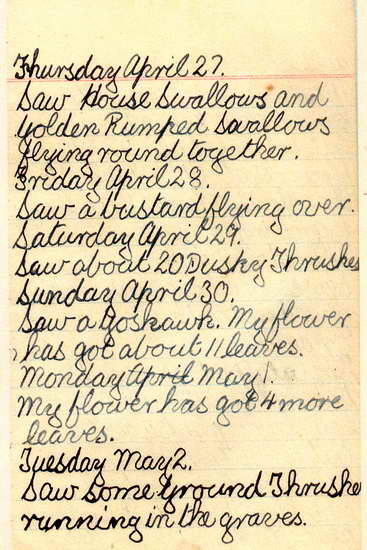 Thursday April 27.
Saw House Swallows and
Golden Rumped Swallows
flying round together.
Friday April 28.
Saw a bustard flying over.
Saturday April 29.
Saw about 20 Dusky Thrushes
Sunday April 30.
Saw a Goshawk. My flower
has got about 11 leaves.
Monday April May 1.
My flower has got 4 more
leaves.
Tuesday May 2.
Saw some Ground Thrushe
running in the graves.